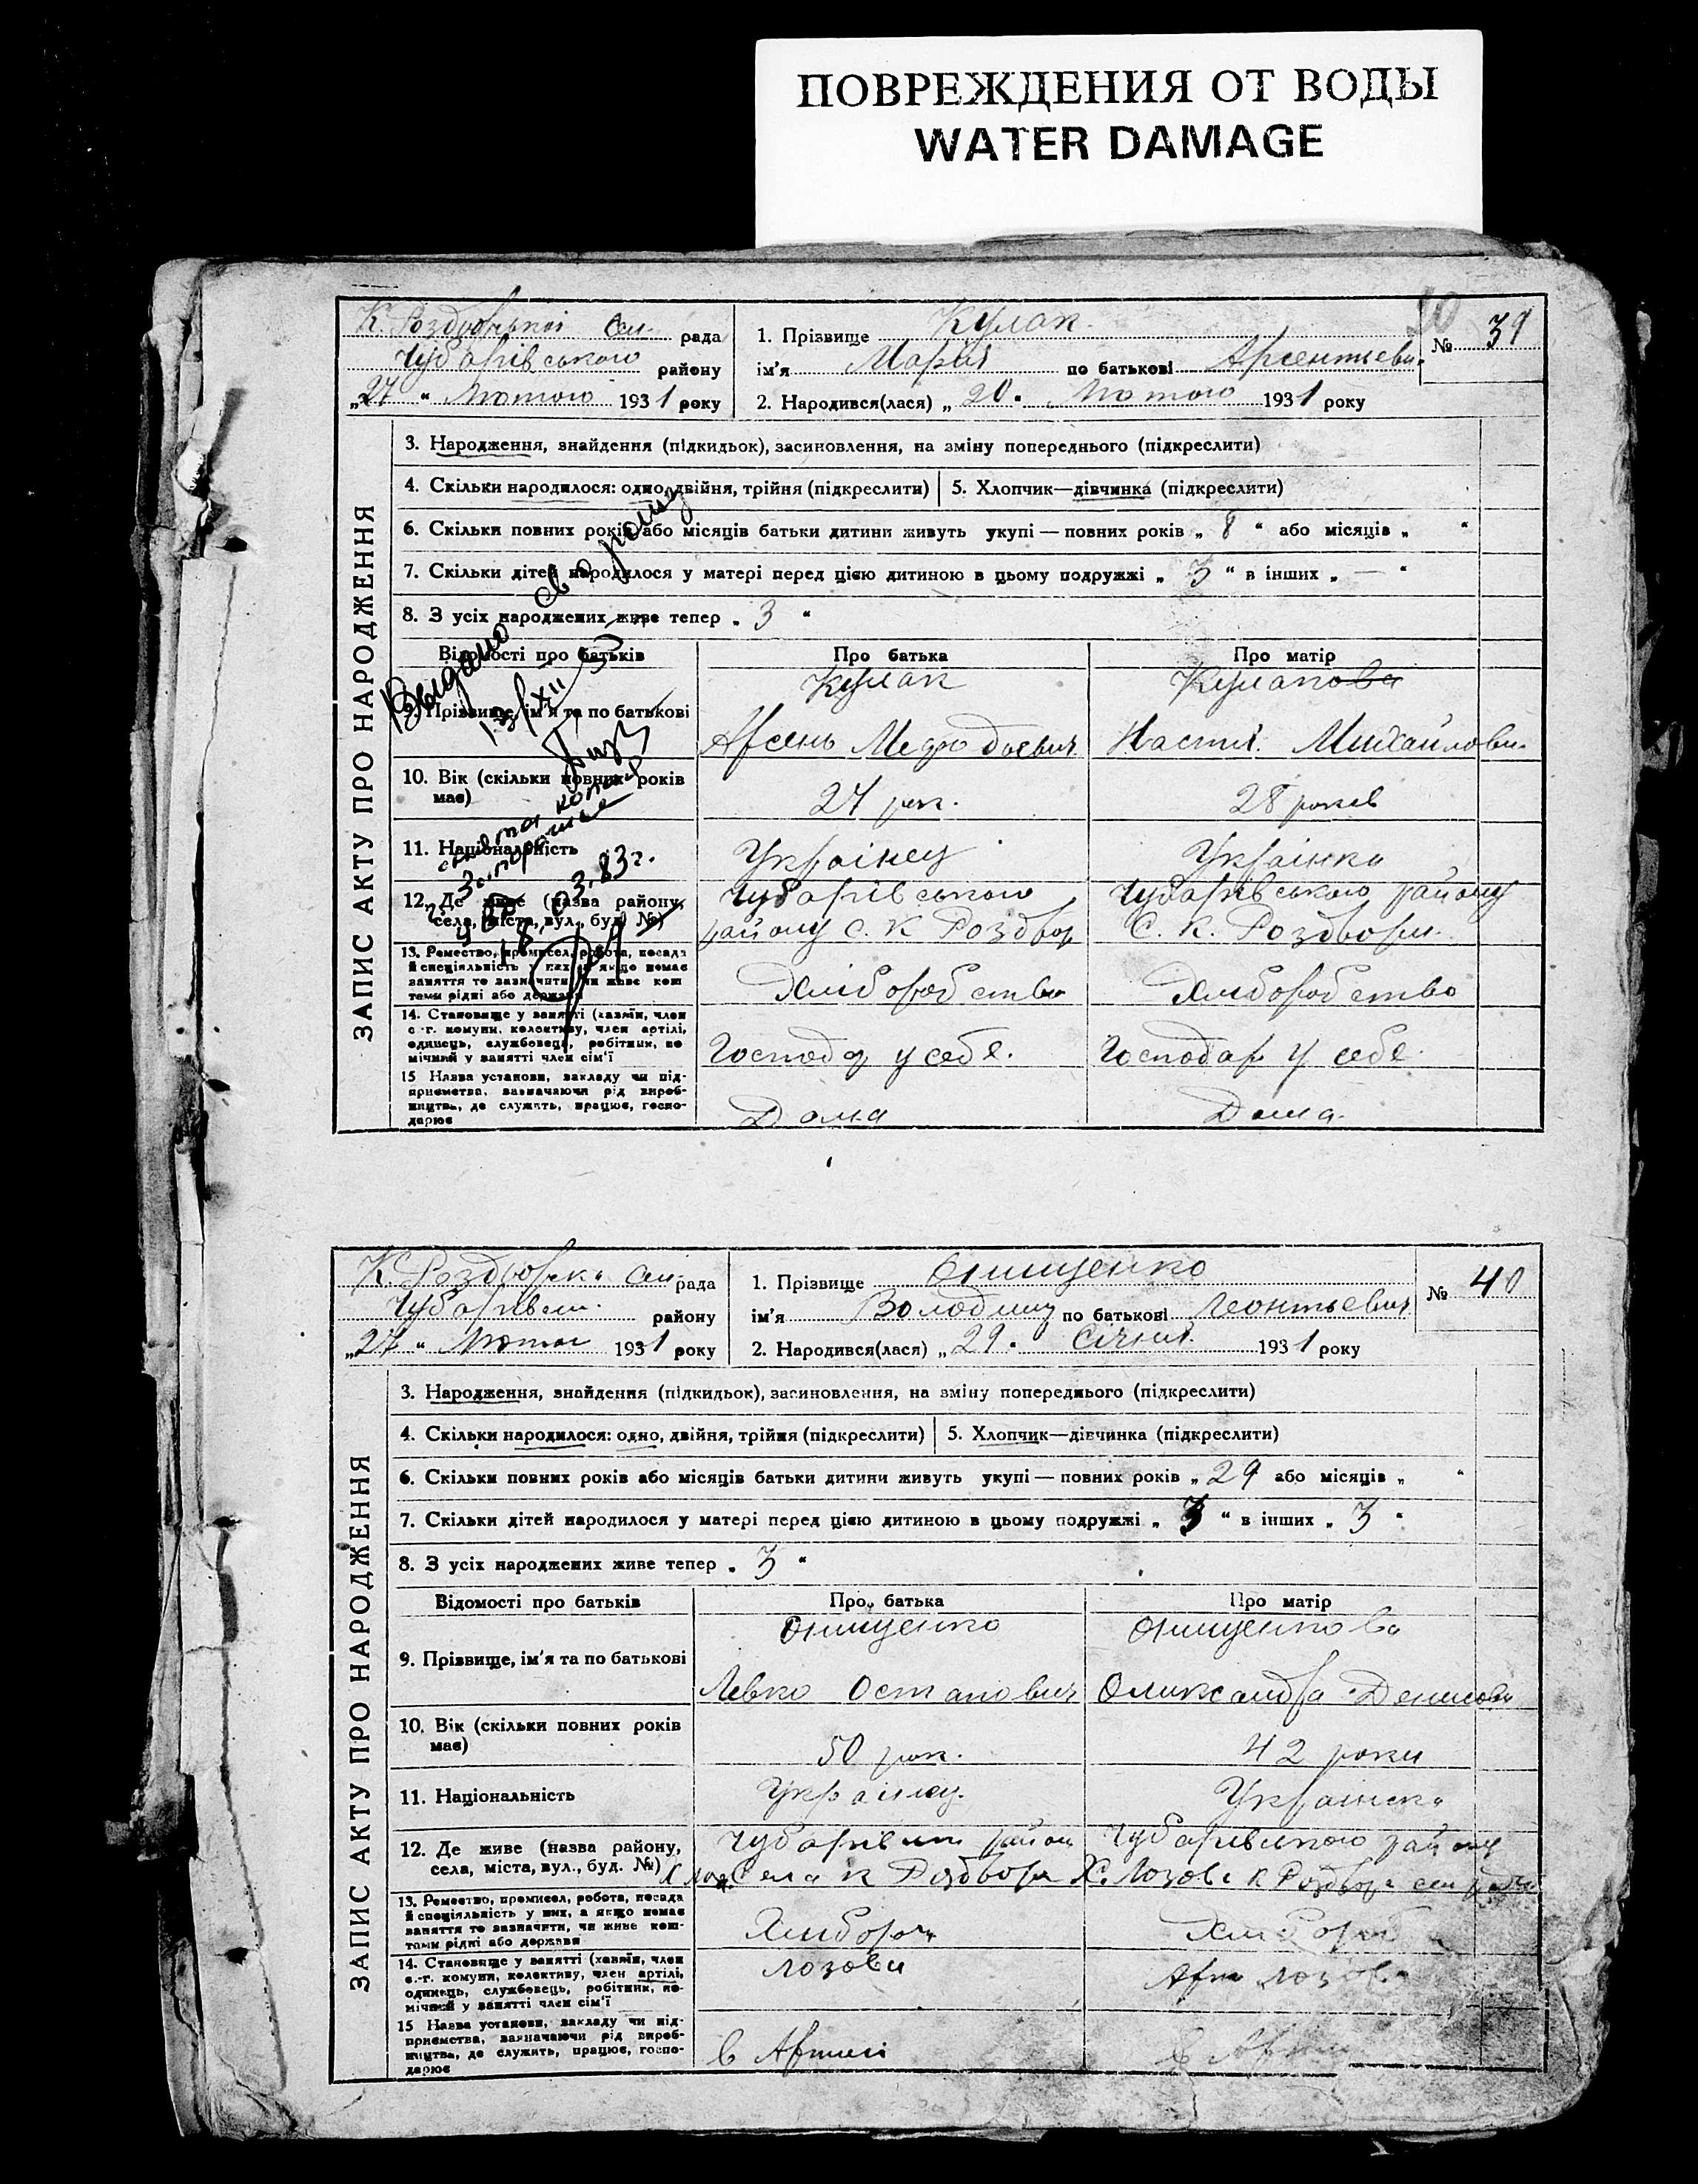 ПОВРЕЖДЕНИЯ ОТ ВОДЫ
WATER DAMAGE
К. Роздорської Сел. рада
Чубарівського району
„27 “ Лютого 1931 року
1. Прізвище Кулак
ім'я Марія по батькові Арсентьевн.
2. Народився(лася) „ 20 “ Лютого 1931 року
№ 39
ЗАПИС АКТУ ПРО НАРОДЖЕННЯ
3. Народження, знайдення (підкидьок), засиновлення, на зміну попереднього (підкреслити)
4. Скільки народилося: одно, двійня, трійня (підкреслити) 5. Хлопчик—дівчинка (підкреслити)
6. Скільки повних років або місяців батьки дитини живуть укупі — повних років „ 8 “ або місяців „ “
7. Скільки дітей народилося у матері перед цією дитиною в цьому подружжі „ 3 “ в інших „ — “
8. З усіх народжених живе тепер „ 3 “
Відомості про батьків Про батька Про матір
9. Прізвище, ім'я та по батькові
Кулак
Арсень
Кулакова
Настя Михайловн.
10. Вік (скільки повних років має)
27 рок.
28 років
11. Національність
Українец
Українка
12. Де живе (назва району, села, міста, вул., буд. №)
Чубарівського
району С. К Роздор
Чубарівського району
С. К. Роздори
13. Ремество, промисел, робота, посада
й спеціяльність у них, а якщо немає
заняття то зазначити, чи живе кош
тами рідні або держави
Хлібороб ство
Хлібороб ство
14. Становище у занятті (хазяїн, член
с.-г. комуни, колективу, член артілі,
одинець, службовець, робітник, по
мічний у занятті член сім'ї
Господар у себе.
Господар у себе.
15 Назва установи, закладу чи під-
приємства, зазначаючи рід вироб-
ництва, де служить, працює, госпо-
дарює
Дома
Дома.
Выдано св о рожд
13/XII
К. Роздорська Сел рада
Чубарівськ. району
„27 “ Лютог 1931 року
1. Прізвище Онищенко
ім'я Володими по батькові Леонтьевич
2. Народився(лася) „ 29 “ Січня 1931 року
№ 40
ЗАПИС АКТУ ПРО НАРОДЖЕННЯ
3. Народження, знайдення (підкидьок), засиновлення, на зміну попереднього (підкреслити)
4. Скільки народилося: одно, двійня, трійня (підкреслити) 5. Хлопчик—дівчинка (підкреслити)
6. Скільки повних років або місяців батьки дитини живуть укупі — повних років „ 29 або місяців „ “
7. Скільки дітей народилося у матері перед цією дитиною в цьому подружжі „ 3 “ в інших „ 3 “
8. З усіх народжених живе тепер „ 3 “
Відомості про батьків Про батька Про матір
9. Прізвище, ім'я та по батькові
Онищенко
Левко Остапович
Онищенкова
Олиександра Денисовн
10. Вік (скільки повних років має)
50 рок.
42 роки
11. Національність
Українец.
Українка
12. Де живе (назва району, села, міста, вул., буд. №)
Чубарівськ району
Села К Роздори
Чубарівського району
Х. Лозове К Роздор сел ради
13. Ремество, промисел, робота, посада
й спеціяльність у них, а якщо немає
заняття то зазначити, чи живе кош-
тами рідні або держави
Хлібороб
Хлібороб
14. Становище у занятті (хазяїн, член
с.-г. комуни, колективу, член артілі,
одинець, службовець, робітник, по-
мічний у занятті член сім'ї
Лозови
Арт Лозов
15 Назва установи, закладу чи під-
приємства, зазначаючи рід вироб-
ництва, де служить, працює, госпо-
дарює
в Артилі
в Арти